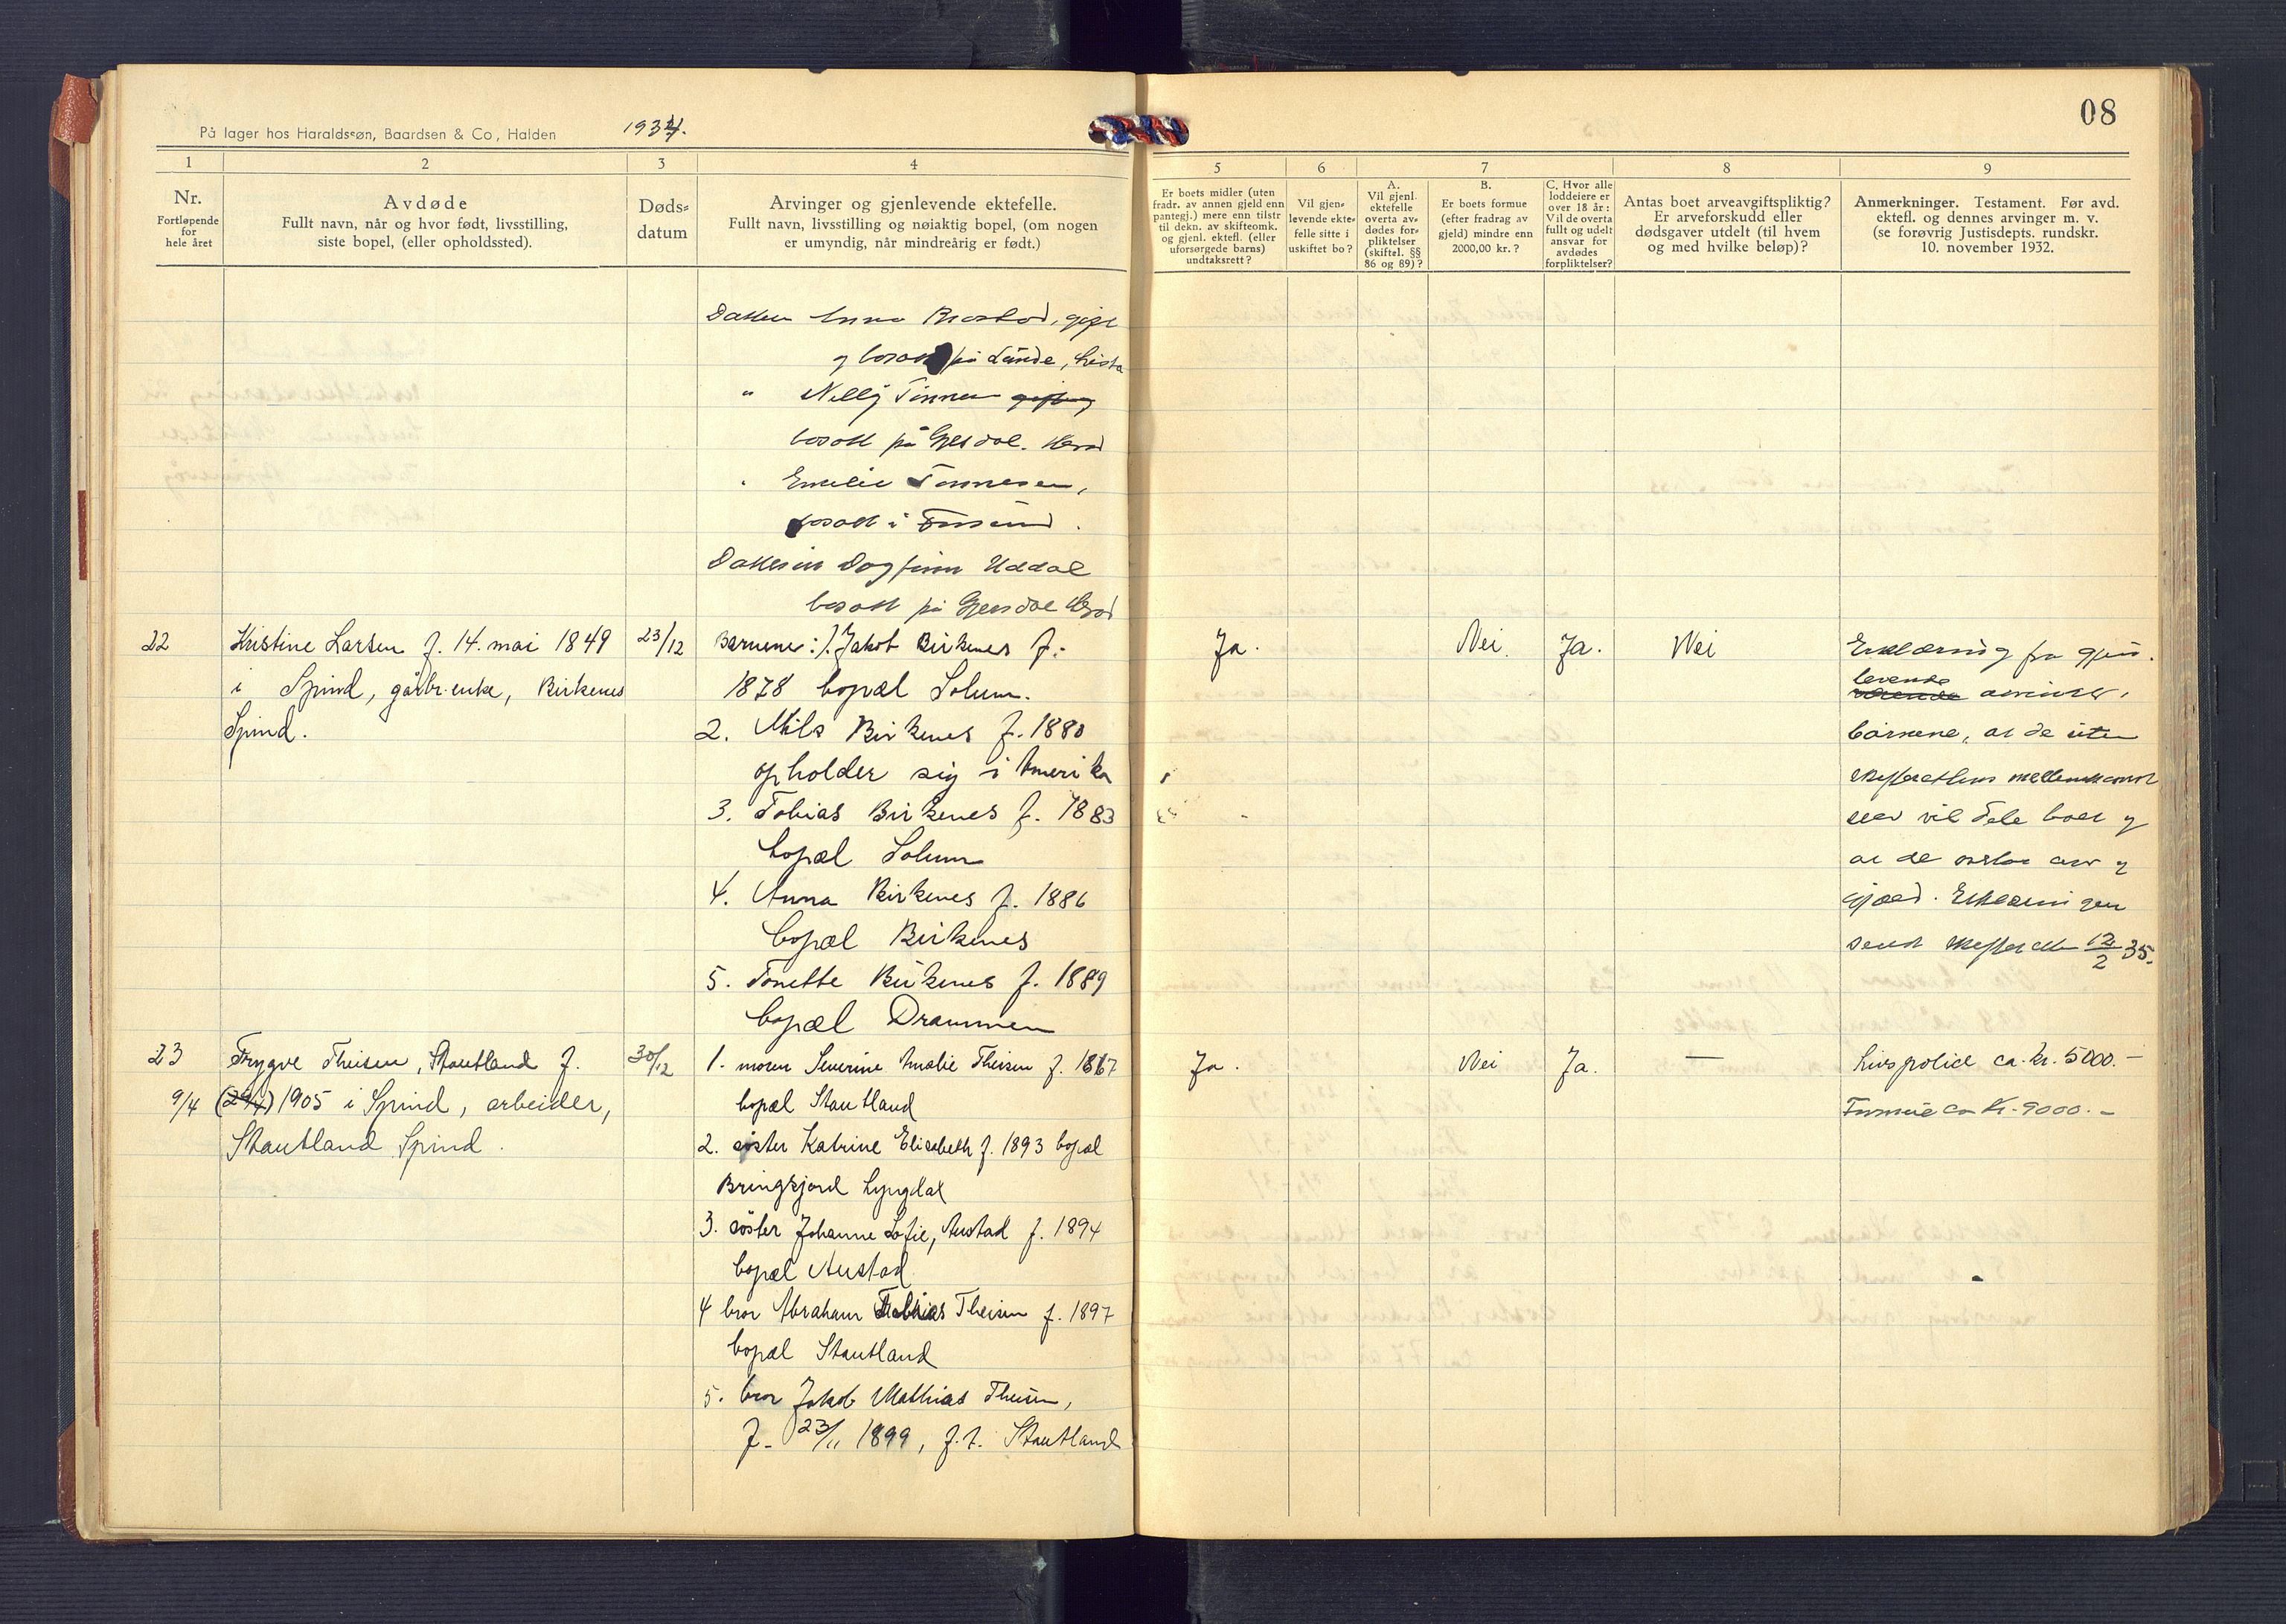 På lager hos Haraldssøn, Baardsen & Co, Halden
1934.
08
1
2
3
4
5
6
7
8
9
Nr.
Fortløpende
for
hele året
Avdøde
Fullt navn, når og hvor født, livsstilling,
siste bopel, (eller opholdssted).
Døds-
datum
Arvinger og gjenlevende ektefelle.
Fullt navn, livsstilling og nøiaktig bopel, (om nogen
er umyndig, når mindreårig er født.)
Er boets midler (uten
fradr. av annen gjeld enn
pantegj.) mere enn tilstr
til dekn. av skifteomk.
og gjenl. ektefl. (eller
uforsørgede barns)
undtaksrett?
Vil gjen-
levende ekte-
felle sitte i
uskiftet bo?
A.
Vil gjenl.
ektefelle
overta av-
dødes for-
pliktelser
(skiftel. §§
86 og 89)?
B.
Er boets formue
(efter fradrag av
gjeld) mindre enn
2000,00 kr.?
C. Hvor alle
loddeiere er
over 18 år:
Vil de overta
fullt og udelt
ansvar for
avdødes
forpliktelser?
Antas boet arveavgiftspliktig?
Er arveforskudd eller
dødsgaver utdelt (til hvem
og med hvilke beløp)?
Anmerkninger. Testament. Før avd.
ektefl. og dennes arvinger m. v.
(se forøvrig Justisdepts. rundskr.
10. november 1932.
Datter Anna Brastad, gift
og bosatt på Lunde, Lista
" Nelly Tønnessen gift og
bosatt på Gjesdal. Herad
" Emelie Tønnesen,
bosatt i Farsund.
Dattersøn Dagfinn Uddal
bosatt på Gjesdal Herad
22
Kristine Larsen f. 14. mai 1849
i Spind, gårbr. enke, Birkenes
Spind.
23/12
Barnene: 1. Jakob Birkenes f.
1878 bopæl Solum.
2. Nils Birkenes f. 1880
opholder sig i Amerika
3. Tobias Birkenes f. 1883
bopæl Solum
4. Anna Birkenes f. 1886
bopæl Birkenes
5. Tonette Birkenes f. 1889
bopæl Drammen
Ja.
Nei.
Ja.
Nei
Erklæring fra gjen-
levende arvinger,
barnene, at de uten
skifterettens mellemkomst
selv vil dele boet og
at de vedtar arv og
gjæld. Erklæringen
sendt skifteretten 12/2 35.
23
Trygve Theisen, Stautland f.
9/4 (29/4) 1905 i Spind, arbeider,
Stautland Spind.
30/12
1. moren Severine Amalie Theisen f. 1867
bopæl Stautland
2. søster Katrine Elisabeth f. 1893 bopæl
Bringsjord Lyngdal
3. søster Johanne Sofie, Austad f. 1894
bopæl Austad
4 bror Abraham Tobias Theisen f. 1897
bopæl Stautland
5. bror Jakob Mathias Theisen,
f. 23/11 1899, f.t. Stautland
Ja.
Nei
Ja.
—
Livspolice ca. kr. 5000.-
Formue ca kr. 9000.-